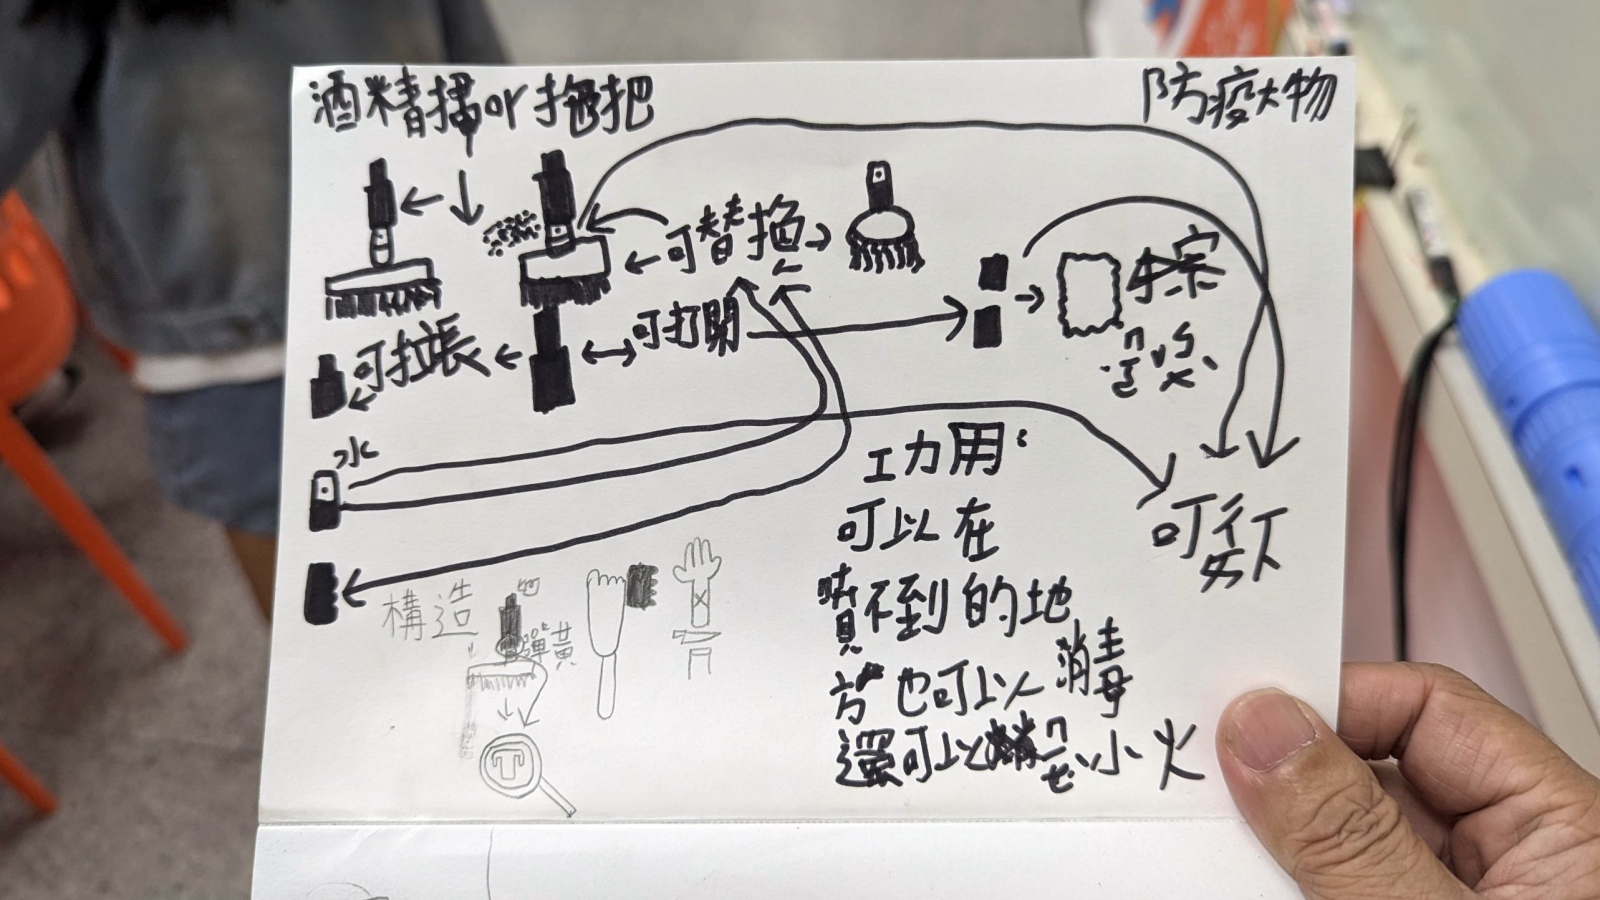 酒精掃or拖把
防疫大物
可替換
可打開
可拉長
水
擦
工力用:
可以在
噴不到的地
方也可以消毒
還可以ㄇㄧㄝˋ小火
構造
彈黃